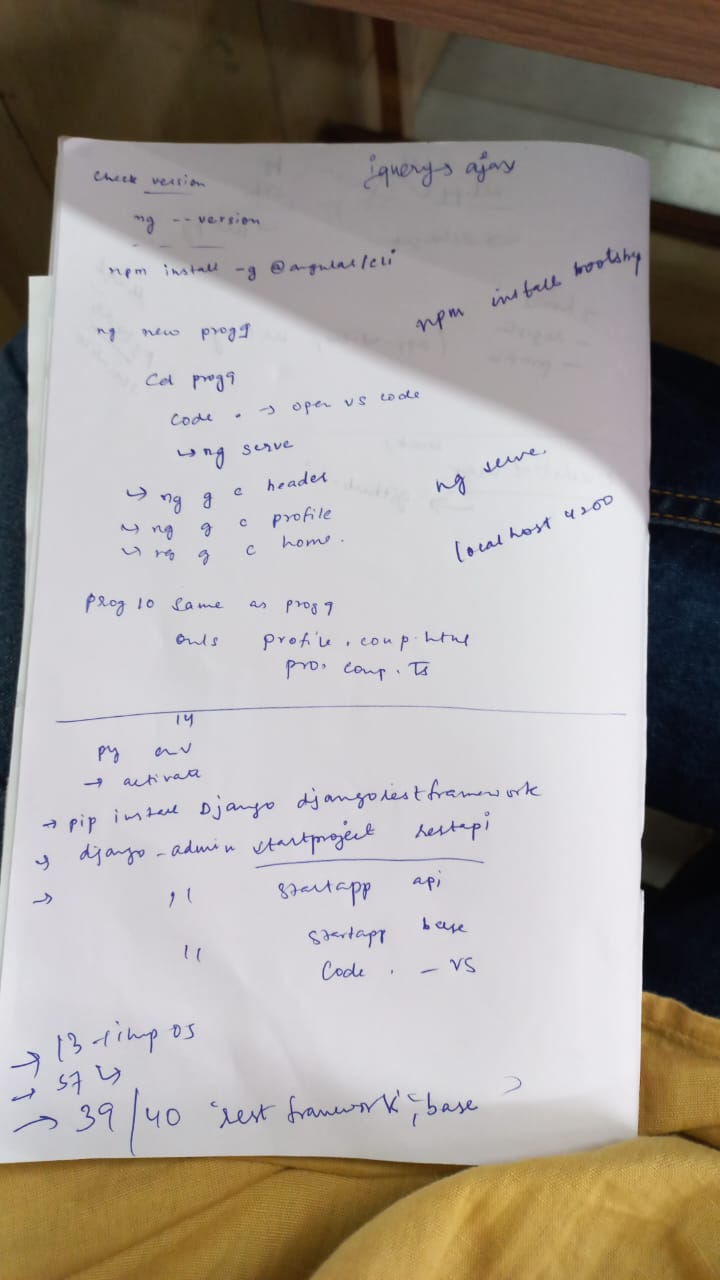 jquery → ajax
Check version
ng -- version
npm install -g @angular/cli
npm install bootstrap
ng new prog9
Cd prog9
Code . → open vs code
↳ ng serve
ng serve.
↳ ng g c header
↳ ng g c profile
↳ ng g c home.
localhost 4200
Prog 10 same as prog9
only profile . comp.html
pro. comp . Ts
14
py env
→ activate
→ pip install Django djangorestframework
→ django-admin startproject restapi
→ 11 startapp api
startapp base
11
Code . – VS
→ 13 → imp os
→ 57 ↳
→ 39/40 'rest framework', base